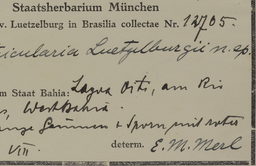 Staatsherbarium München
v. Luetzelburg in Brasilia collectae Nr. 12705.
ricularia Luetzelburgii n. sp.
m Staat Bahia: Lagoa am Rio
s, West Bahia.
Gaumen & Sporn mit roter
VII. determ. E. M. Merl